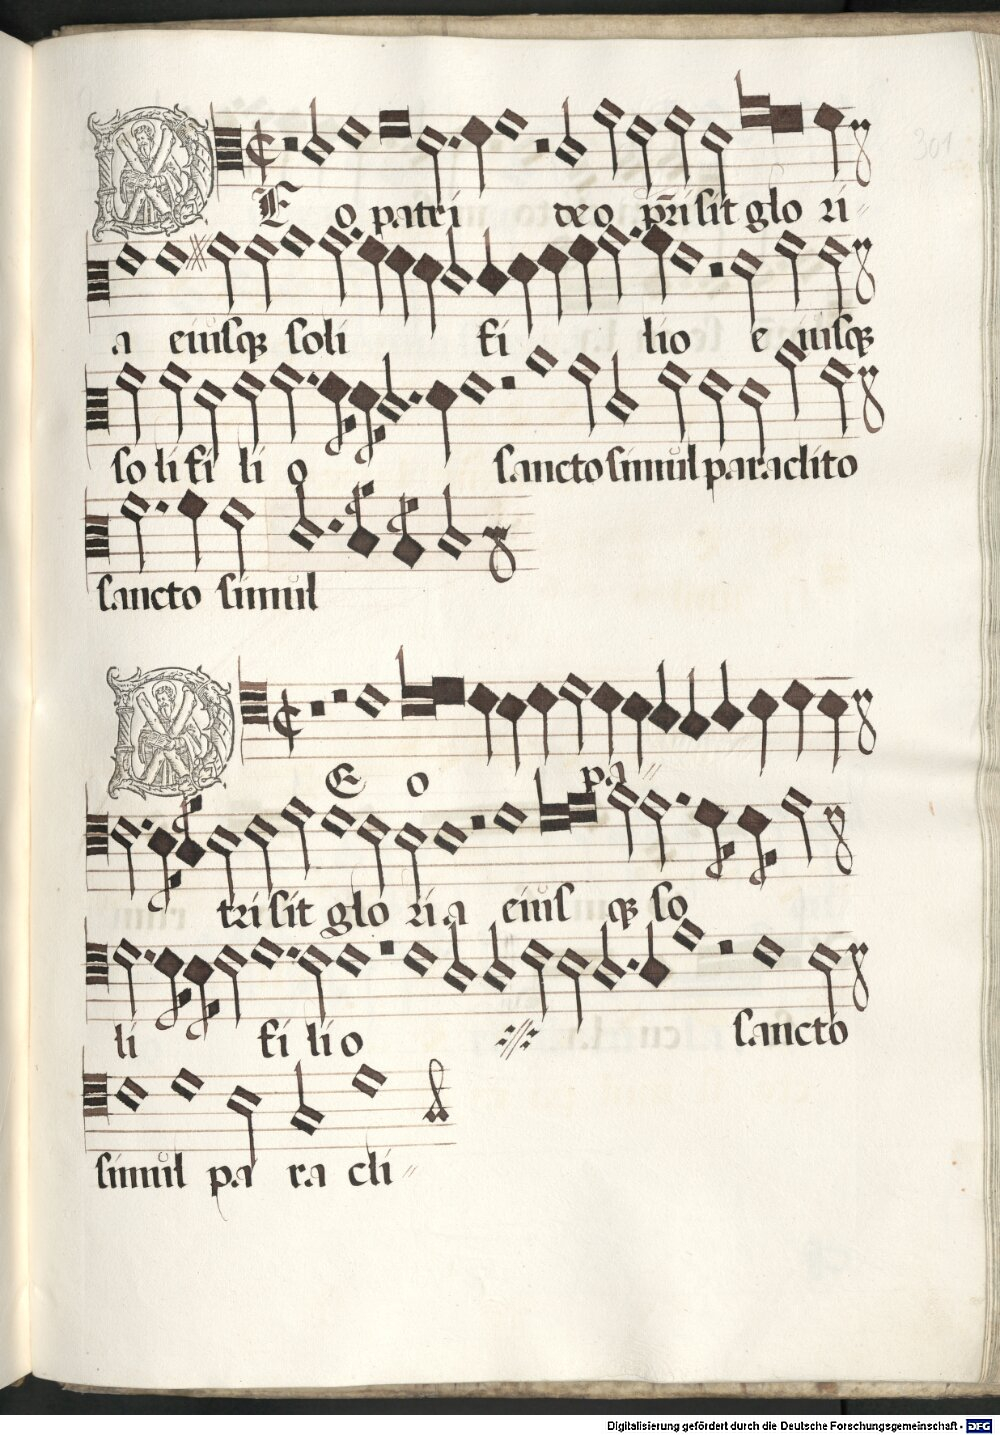 301
DEo patri deo pr̄i sit glo ri
a eiusq̨ soli fi lio e iusq̨
so li fi li o sancto simul paraclito
sancto simul
DEo pa
tri sit glo ri a eius q̨ so
li fi li o sancto
simul pa ra cli
Digitalisierung gefördert durch die Deutsche Forschungsgemeinschaft - DFG